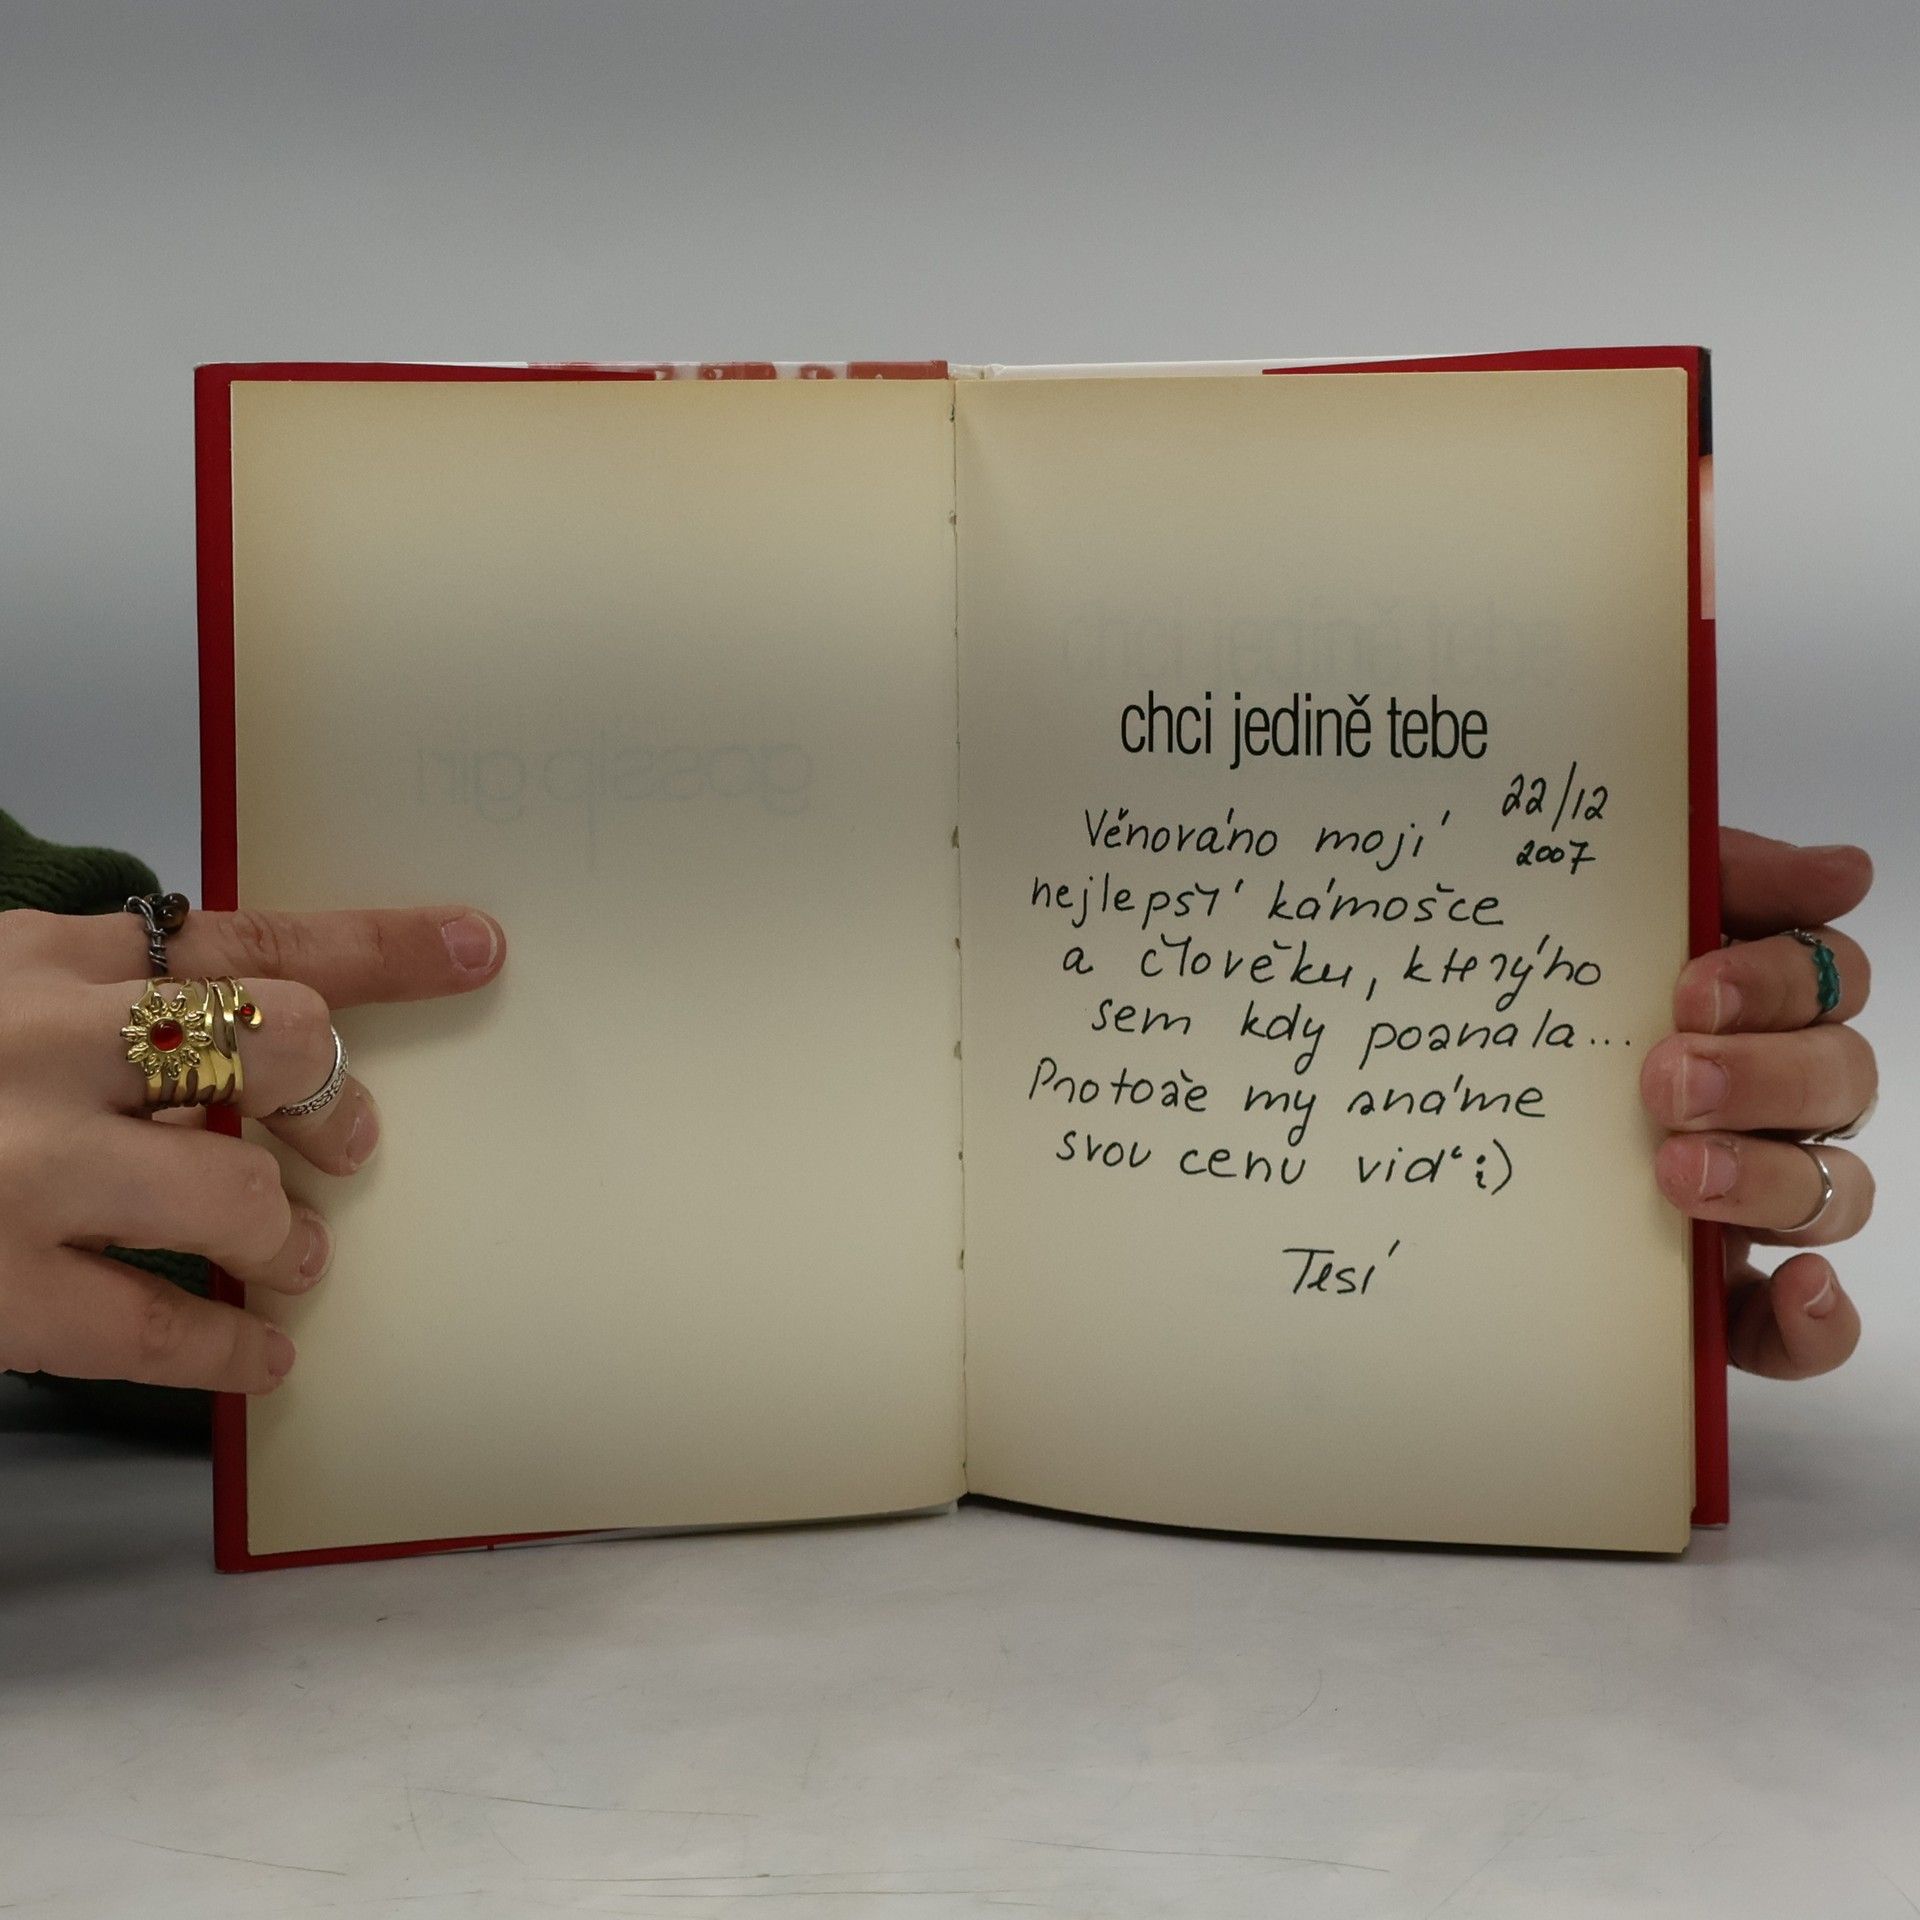 chci jedině tebe
22/12
2007
Věnováno mojí
nejlepší kámošce
a člověku, kterýho
sem kdy poznala...
Protože my známe
svou cenu viď ;)
Tesí
gossip girl